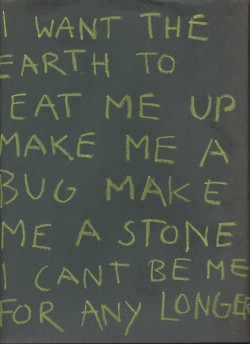 I WANT THE
EARTH TO
EAT ME UP
MAKE ME A
BUG MAKE
ME A STONE
I CANT BE ME
FOR ANY LONGER